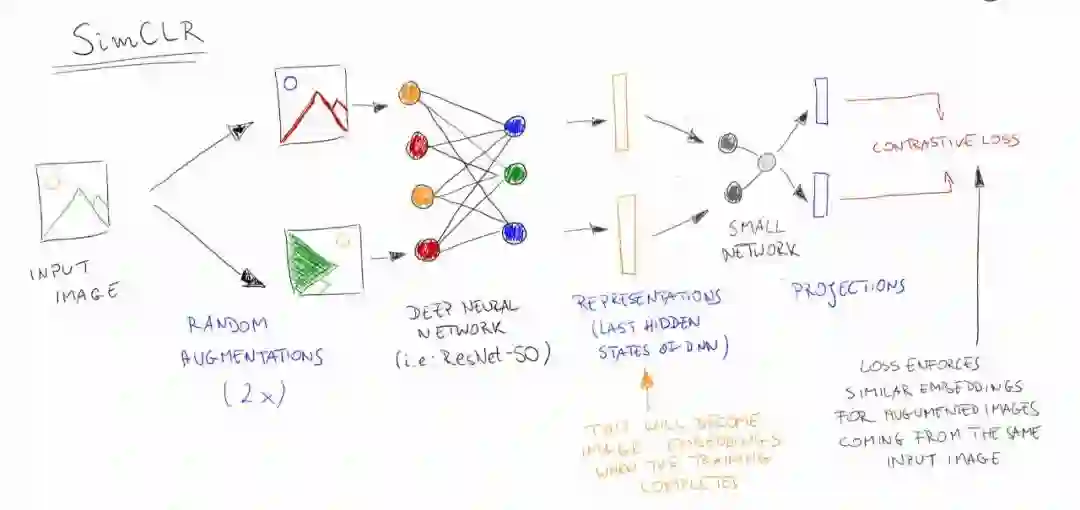 SimCLR
INPUT
IMAGE
RANDOM
AUGMENTATIONS
(2x)
DEEP NEURAL
NETWORK
(i.e. ResNet-50)
REPRESENTATIONS
(LAST HIDDEN
STATES OF DNN)
THIS WILL BECOME
IMAGE EMBEDDINGS
WHEN THE TRAINING
COMPLETES
SMALL
NETWORK
PROJECTIONS
CONTRASTIVE LOSS
LOSS ENFORCES
SIMILAR EMBEDDINGS
FOR AUGUMENTED IMAGES
COMING FROM THE SAME
INPUT IMAGE